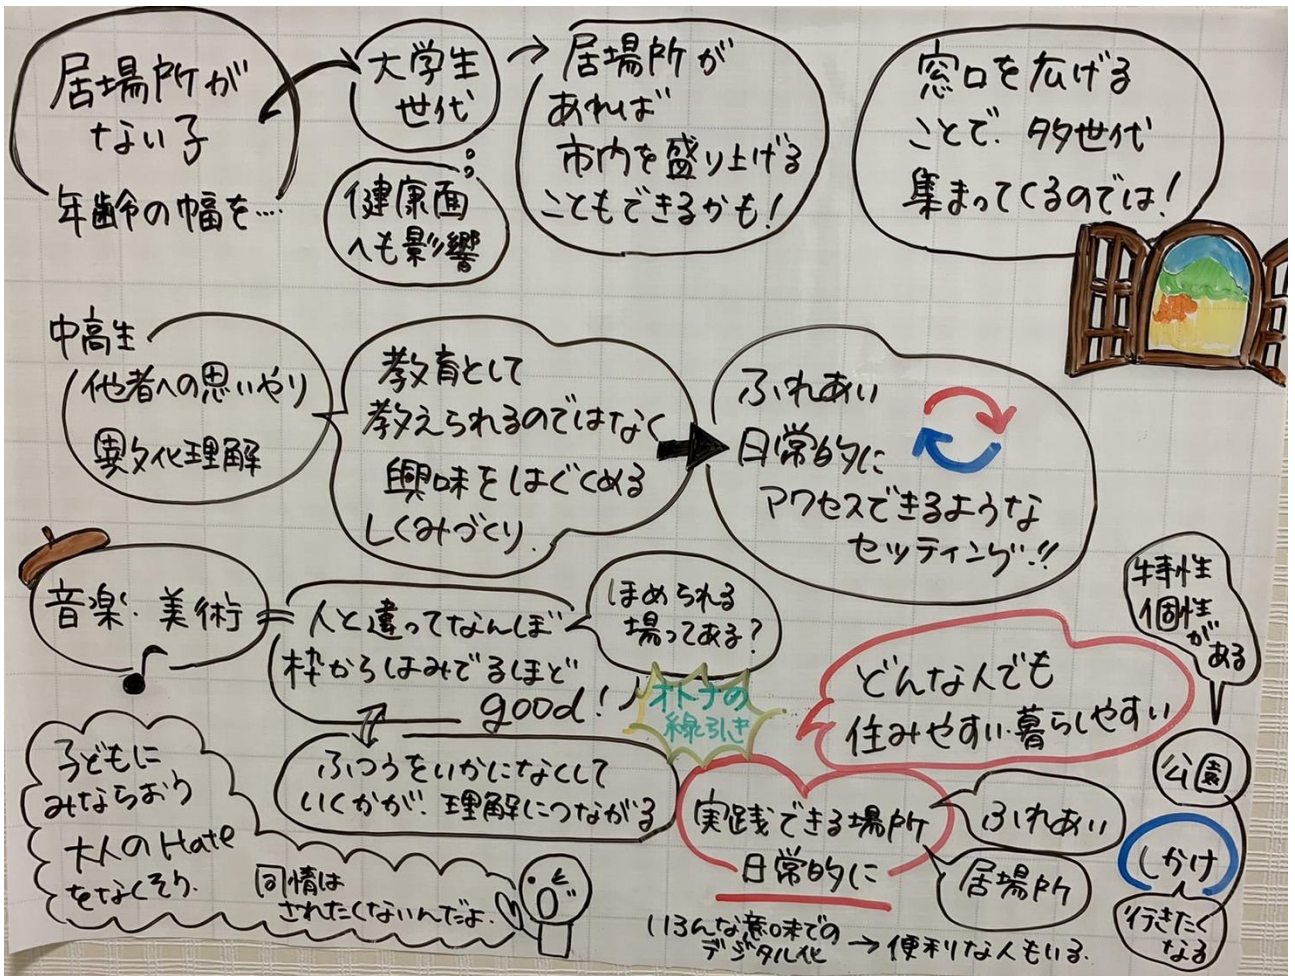 居場所が
ない子
年齢の幅を‥‥
大学生
世代
健康面
へも影響
居場所が
あれば
市内を盛り上げる
こともできるかも!
窓口を広げる
ことで、多世代
集まってくるのでは!
中高生
他者への思いやり
異文化理解
教育として
教えられるのではなく
興味をはぐくめる
しくみづくり.
ふれあい
日常的に
アクセスできるような
セッティング!!
音楽・美術
人と違ってなんぼ
枠からはみでるほど
good!
ほめられる
場ってある?
オトナの
線引き
ふつうをいかになくして
いくかが、理解につながる
子どもに
みならおう
大人のHate
をなくそう.
同情は
されたくないんだよ.
どんな人でも
住みやすい・暮らしやすい
実践できる場所
日常的に
ふれあい
居場所
特性
個性
がある
公園
しかけ
行きたく
なる
いろんな意味での
デジタル化 → 便利な人もいる.